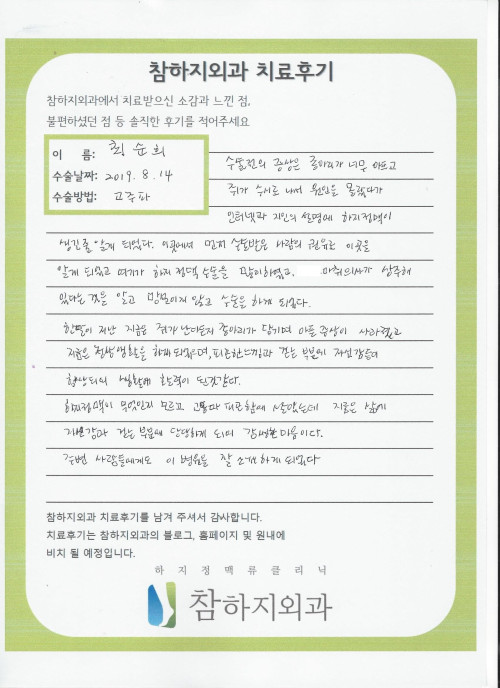 참하지외과 치료후기
참하지외과에서 치료받으신 소감과 느낀 점,
불편하셨던 점 등 솔직한 후기를 적어주세요
이 름: 최순희
수술날짜: 2019. 8. 14
수술방법: 고주파
수술전의 증상은 종아리가 너무 아프고
쥐가 수시로 나서 원인을 몰랐다가
인터넷과 지인의 설명에 하지정맥이
생긴줄 알게 되었다. 이곳에서 먼저 수술받은 사람의 권유로 이곳을
알게 되었고 여기가 하지정맥 수술을 많이하였고, 마취의사가 상주해
있다는 것을 알고 망설이지 않고 수술을 하게 되었다.
한달이 지난 지금은 쥐가 난다든지 종아리가 당기며 아픈 증상이 사라졌고
지금은 일상생활을 하게 되었으며, 피곤한느낌과 걷는 부분의 자신감등이
향상되어 생활에 활력이 된것같다.
하지정맥이 무엇인지 모르고 고통과 피곤함에 살았는데 지금은 삶에
자신감과 걷는 부분에 당당하게 되어 감사한마음이다.
주변 사람들에게도 이 병원을 잘 소개하게 되었다
참하지외과 치료후기를 남겨 주셔서 감사합니다.
치료후기는 참하지외과의 블로그, 홈페이지 및 원내에
비치 될 예정입니다.
하지정맥류클리닉
참하지외과